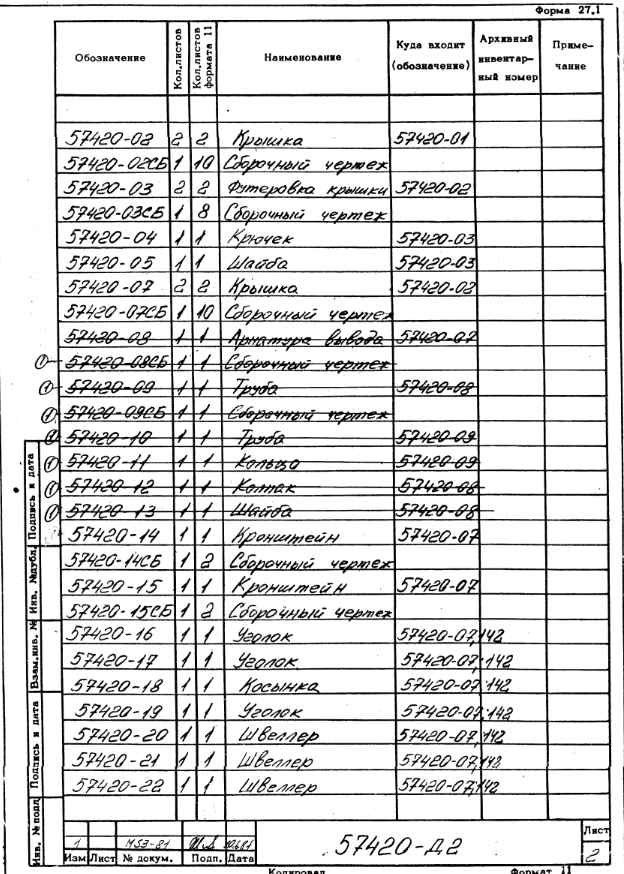 Форма 27.1
Обозначение Кол.листов Кол.листов формата 11 Наименование Куда входит (обозначение) Архивный инвентарный номер Примечание
57420-02 2 2 Крышка 57420-01
57420-02СБ 1 10 Сборочный чертеж
57420-03 2 2 Футеровка крышки 57420-02
57420-03СБ 1 8 Сборочный чертеж
57420-04 1 1 Крючек 57420-03
57420-05 1 1 Шайба 57420-03
57420-07 2 2 Крышка 57420-02
57420-07СБ 1 10 Сборочный чертеж
57420-08 1 1 Арматура вывода 57420-07
1 57420-08СБ 1 1 Сборочный чертеж
1 57420-09 1 1 Труба 57420-08
1 57420-09СБ 1 1 Сборочный чертеж
1 57420-10 1 1 Труба 57420-09
1 57420-11 1 1 Кольцо 57420-09
1 57420-12 1 1 Колпак 57420-08
1 57420-13 1 1 Шайба 57420-08
57420-14 1 1 Кронштейн 57420-07
57420-14СБ 1 2 Сборочный чертеж
57420-15 1 1 Кронштейн 57420-07
57420-15СБ 1 2 Сборочный чертеж
57420-16 1 1 Уголок 57420-07,142
57420-17 1 1 Уголок 57420-07,142
57420-18 1 1 Косынка 57420-07,142
57420-19 1 1 Уголок 57420-07,142
57420-20 1 1 Швеллер 57420-07,142
57420-21 1 1 Швеллер 57420-07,142
57420-22 1 1 Швеллер 57420-07,142
Подпись и дата
Инв. №дубл.
Взам.инв. №
Подпись и дата
Инв. №подл
1 М53-81
Изм Лист № докум. Подп. Дата
57420-Д2
Лист
2
Копировал Формат 11